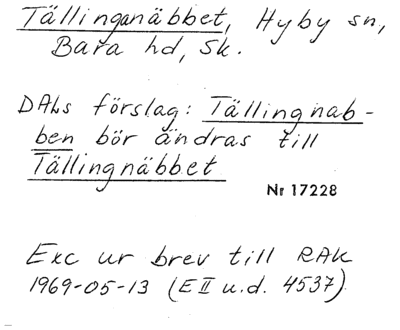 Tällinganäbbet, Hyby sn,
Bara hd, Sk.
DALs förslag: Tällingnab-
ben bör ändras till
Tällingnäbbet
Nr 17228
Exc ur brev till RAK
1969-05-13 (E II u.d. 4537)